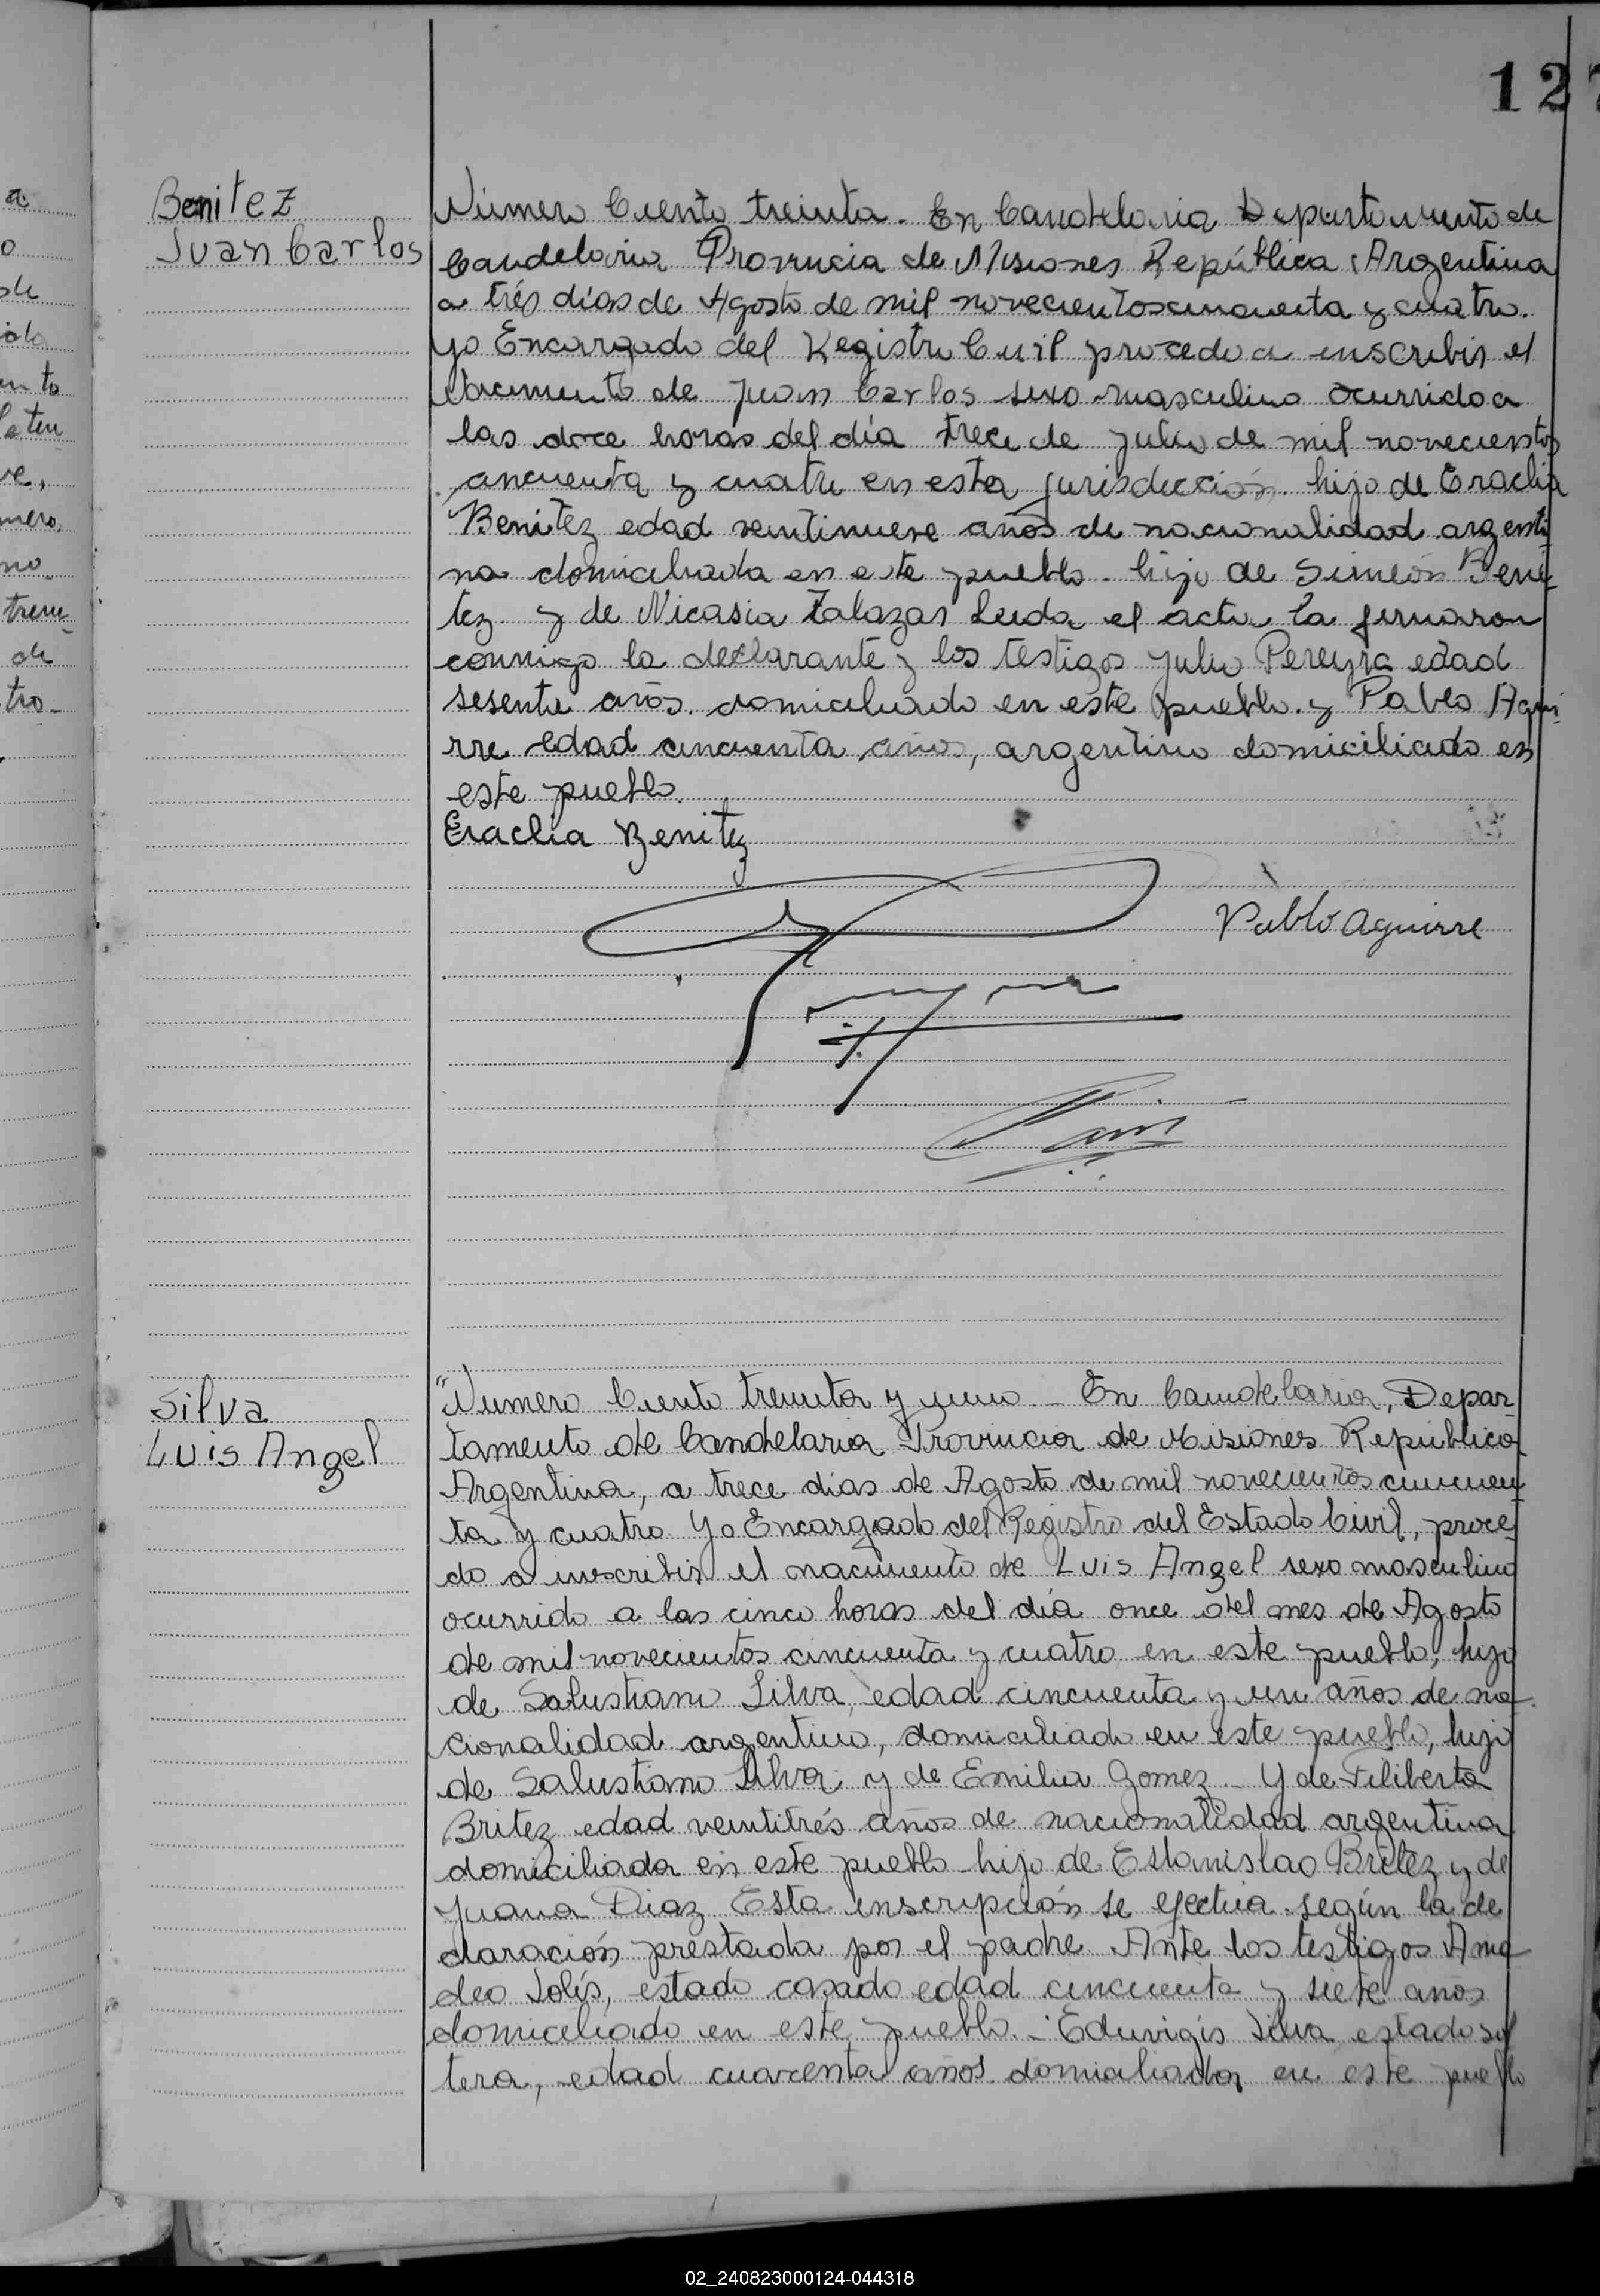 127
Benitez
Juan Carlos
Número Ciento treinta. En Candelaria Departamento de
Candelaria Provincia de Misiones República Argentina
a trés días de Agosto de mil novecientos cincuenta y cuatro.
yo Encargado del Registro Civil procedo a inscribir el
Nacimiento de Juan Carlos sexo masculino ocurrido a
las doce horas del día trece de julio de mil novecientos
cincuenta y cuatro en esta jurisdicción hijo de Eraclia
Benitez edad veintinueve años de nacionalidad argenti
na domiciliada en este pueblo. hijo de Simeón Beni-
tez y de Nicasia Zalazar Leida el acta la firmaron
conmigo la declarante y los testigos Julio Pereyra edad
sesenta años. domiciliado en este pueblo. y Pablo Agui
rre edad cincuenta años, argentino domiciliado en
este pueblo.
Eraclia Benitez
Pablo Aguirre
Silva
Luis Angel
"Numero Ciento treinta y uno - En Candelaria, Depar-
tamento de Candelaria Provincia de Misiones República
Argentina, a trece dias de Agosto de mil novecientos cincuen
ta y cuatro Yo Encargado del Registro del Estado Civil, proce-
do a inscribir el nacimiento de Luis Angel sexo masculino
ocurrido a las cinco horas del día once del mes de Agosto
de mil novecientos cincuenta y cuatro en este pueblo, hijo
de Salustiano Silva, edad cincuenta y un años de na-
cionalidad argentino, domiciliado en este pueblo, hijo
de Salustiano Silva y de Emilia Gomez - Y de Filiberta
Britez edad veintitrés años de nacionalidad argentina
domiciliada en este pueblo hijo de Estanislao Britez y de
Juana Diaz Esta inscripción se efectúa según la de
claración prestada por el padre Ante los testigos Ama
deo Solís, estado casado edad cincuenta y siete años
domiciliado en este pueblo.- Eduvigis Silva estado sol
tera, edad cuarenta años domiciliada en este pueblo
02_240823000124-044318